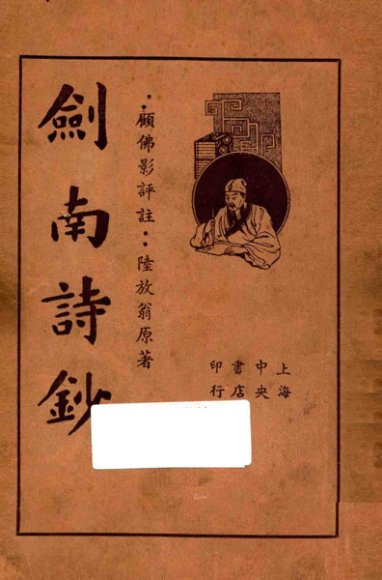 劍南詩鈔
顧佛影評註：陸放翁原著
上海
中央
書店
印行